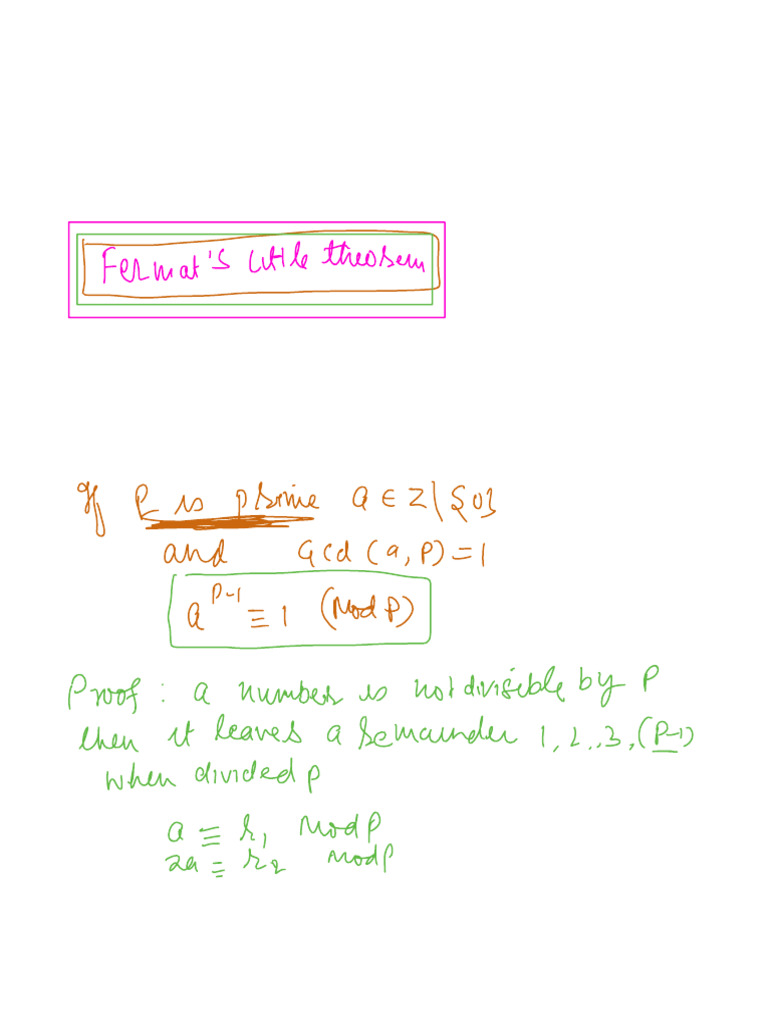 Fermat's little theorem
If P is prime a ∈ Z\{0}
and Gcd (a, P) = 1
a^{P-1} ≡ 1 (Mod P)
Proof : a number is not divisible by P
then it leaves a remainder 1, 2, , 3, (P-1)
when divided p
a ≡ r₁ Mod P
2a ≡ r₂ Mod P